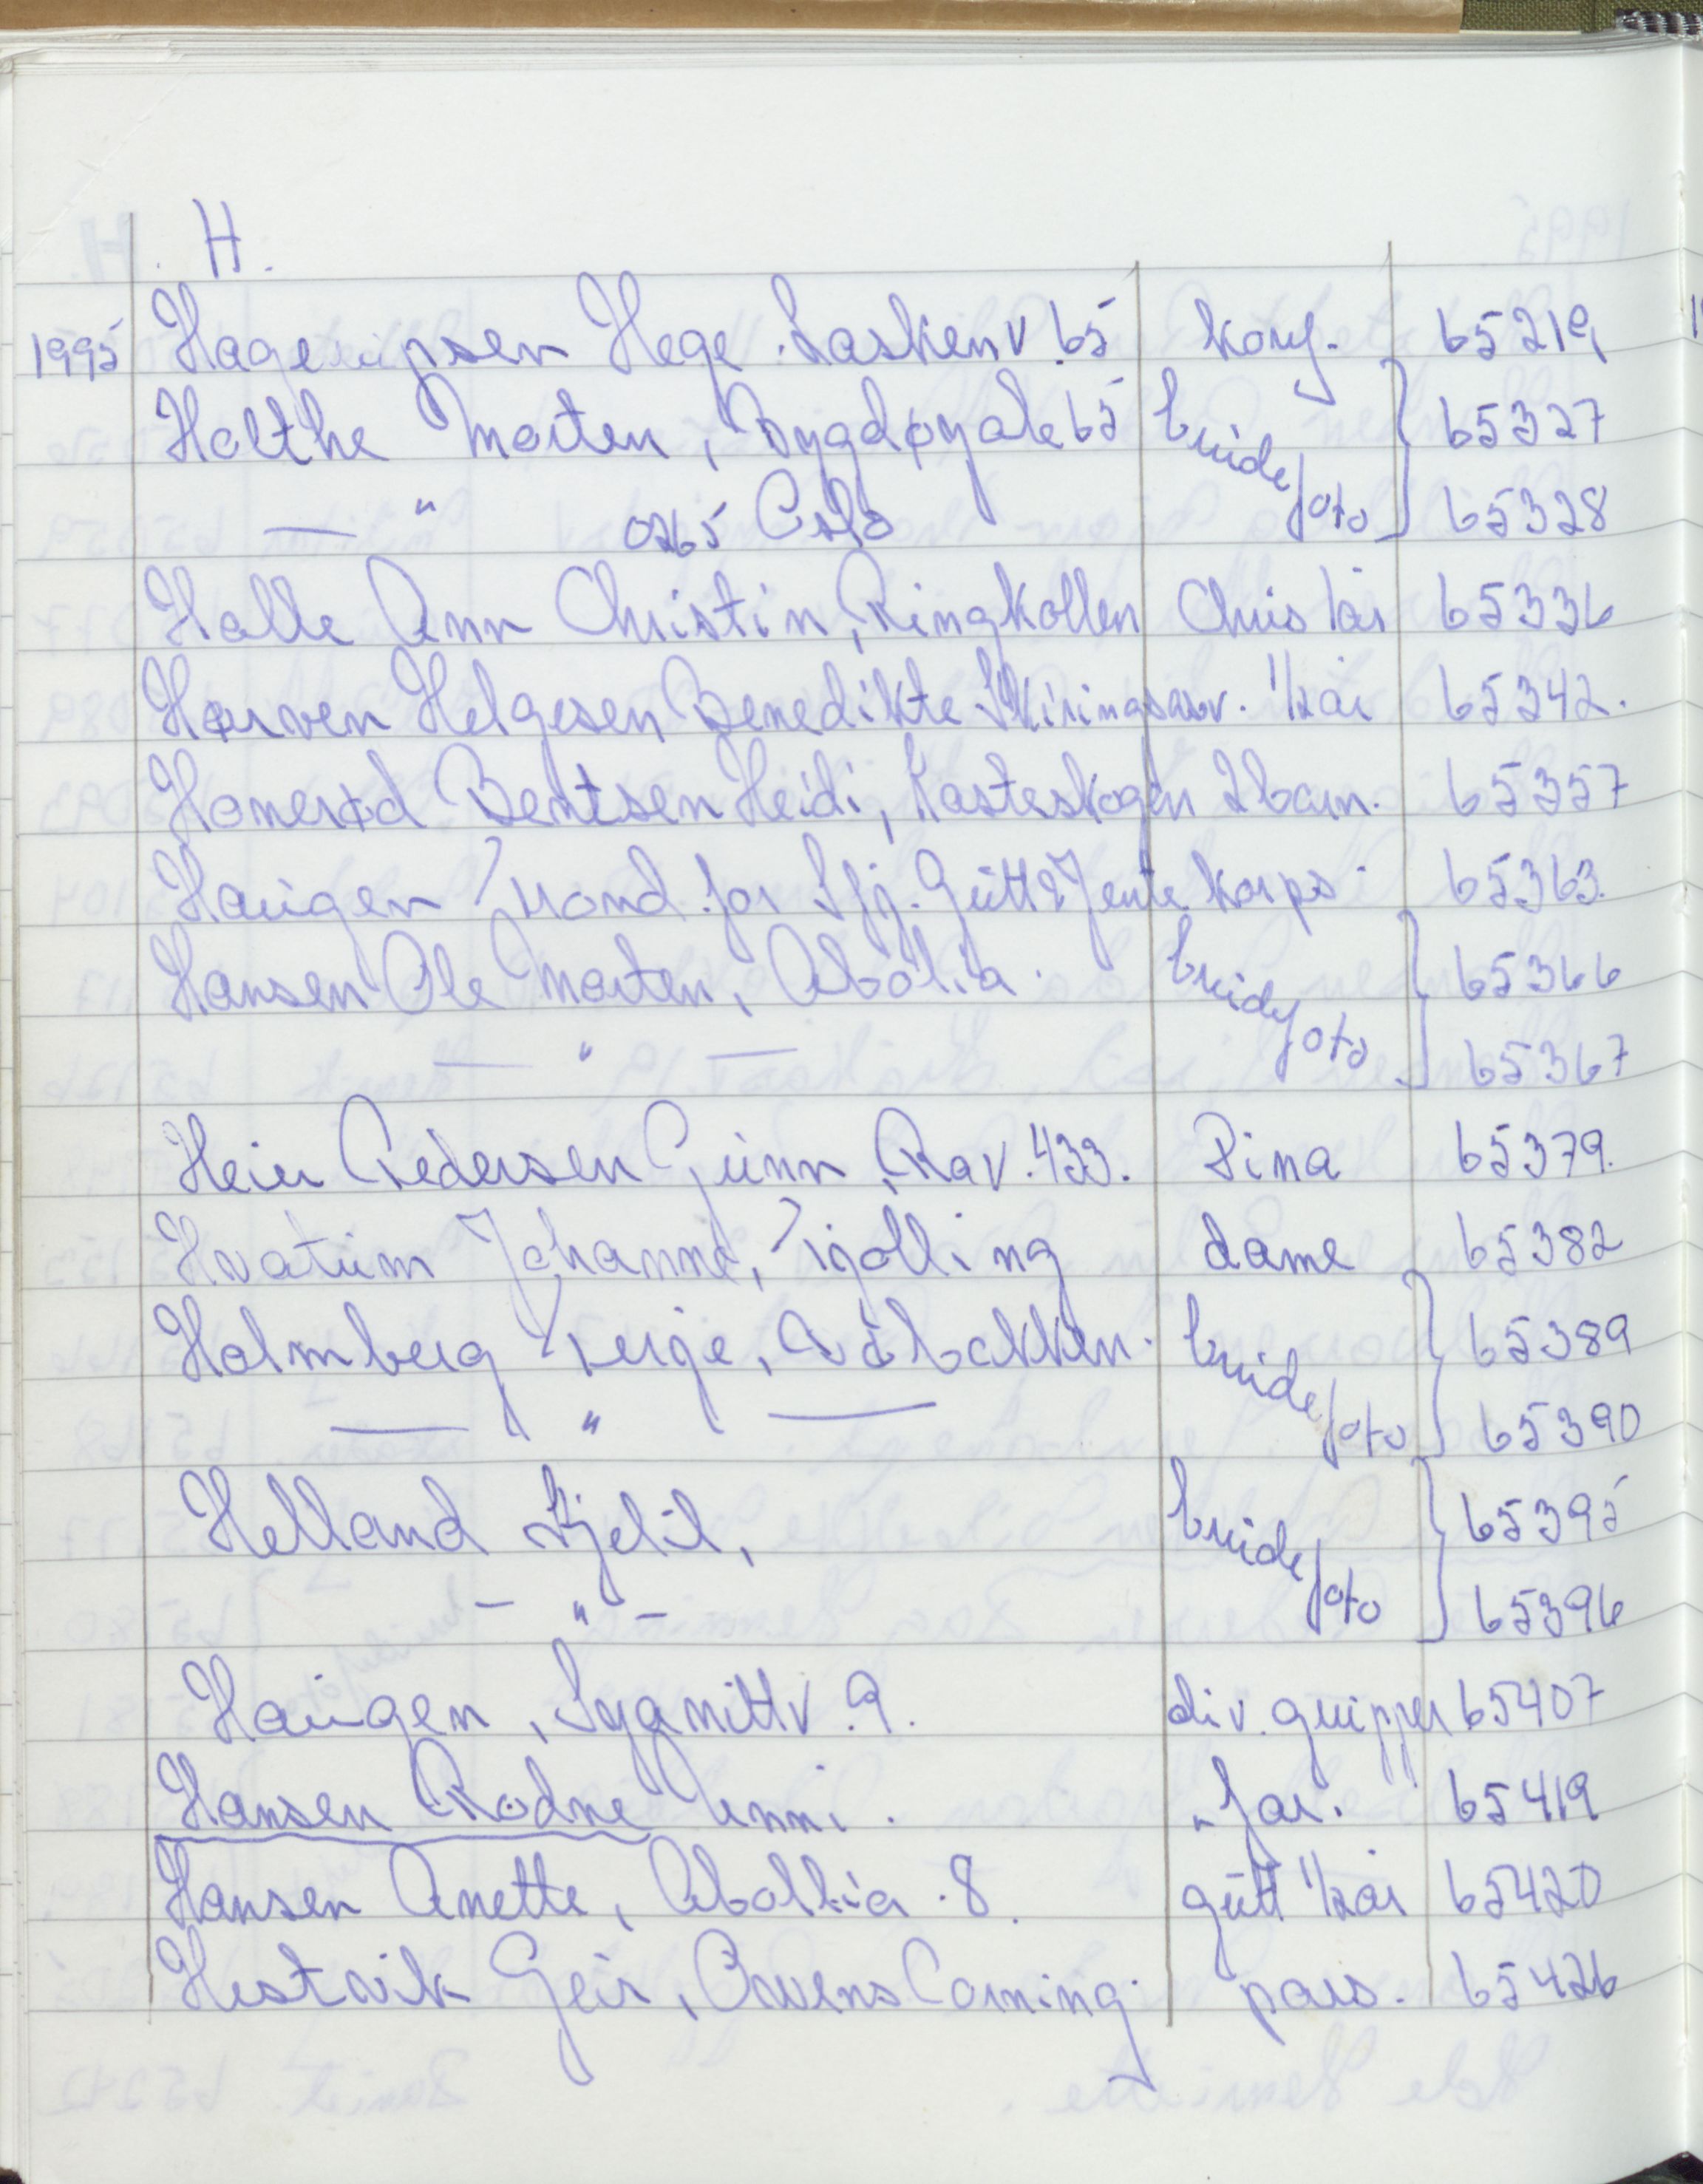 H.
1995 Hage Jepsen Hege. Laskenv. 65 konf. 65219
Holthe Morten, Bygdøyale 65 brudefoto 65327
— " 0265 Oslo 65328
Halle Ann Christin, Ringkollen Chris 1år 65336
Hørven Helgesen Benedikte Skiringsalv. 1/2 år 65342.
Homerød Berntsen Heidi, Kasteskogen 2 barn. 65357
Haugen Trond for Sfj. Gutt & Jente korps. 65363.
Hansen Ole Morten, Åbolia. brudefoto 65366
— " — 65367
Heier Pedersen Gunn, Rav. 433. Pima 65379.
Hvatum Johanne, Tjølling dame 65382
Holmberg Terje, Dåbakken. brudefoto 65389
— " — 65390
Helland Kjetil, brudefoto 65395
- " - 65396
Haugen, Lyganittv. 9. div. grupper 65407
Hansen Rodne Unni. "far. 65419
Hansen Anette, Åbolia. 8. gutt 1/2 år 65420
Hestvik Geir, Owens Corning. pass. 65426